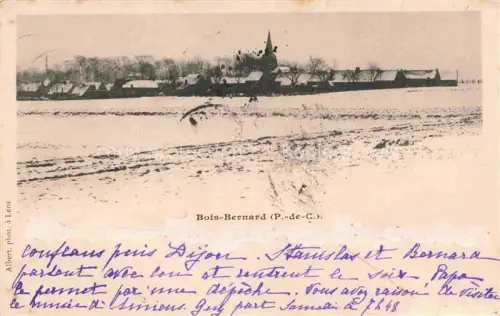 Bois-Bernard (P.-de-C.).
Albert, phot. à Lens
Conflans puis Dijon. Stanislas et Bernard
partont avec lou et rentrent le soir Papa
le permet par une dépêche. Vous avez raison de visiter
le musée d'Amiens. Guy part Samedi à 7h48